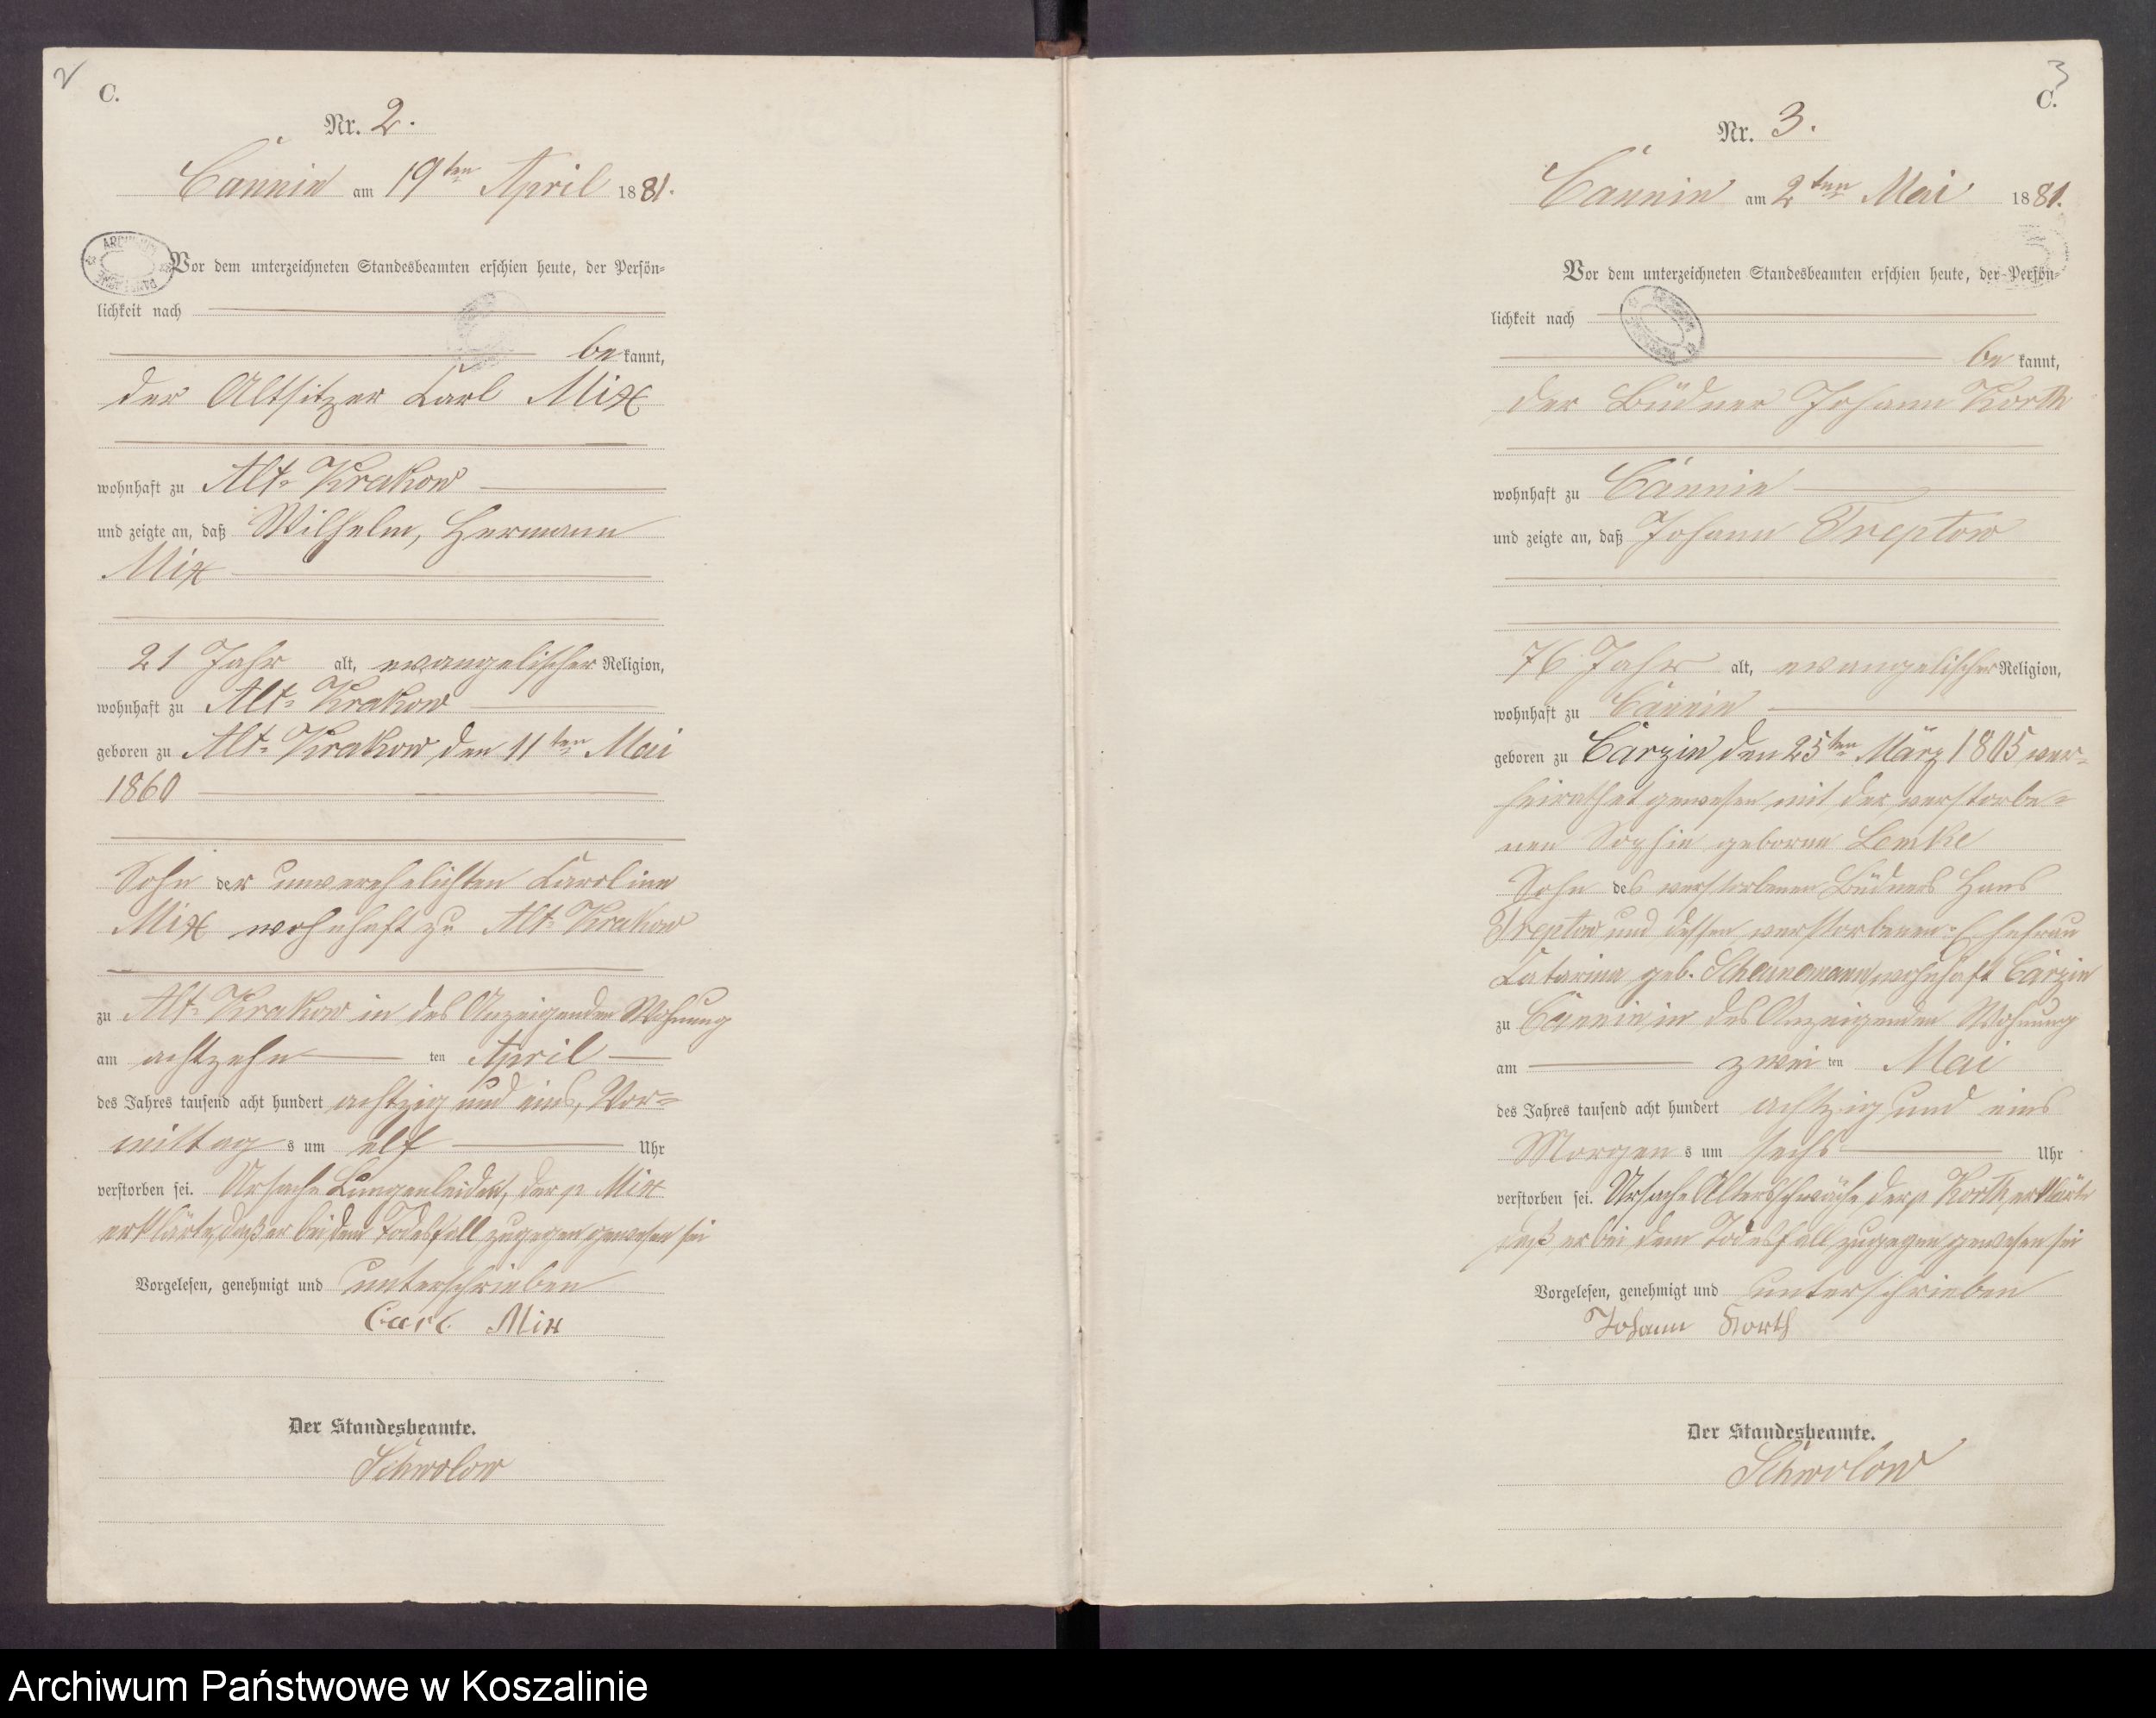 2
C.
Nr. 2.
Cannin am 19ten April 1881.
Vor dem unterzeichneten Standesbeamten erschien heute, der Persön=
lichkeit nach
be kannt,
der Altsitzer Carl Mix
wohnhaft zu Alt=Krakow
und zeigte an, daß Wilhelm, Hermann
Mix
21 Jahr alt, evangelischer Religion,
wohnhaft zu Alt=Krakow
geboren zu Alt=Krakow, den 11ten Mai
1860
Sohn der unverehelichten Caroline
Mix wohnhaft zu Alt=Krakow
zu Alt=Krakow in des Anzeigenden Wohnung
am achtzehn ten April
des Jahres tausend acht hundert achtzig und eins, Vor=
mittag s um elf Uhr
verstorben sei. Ursache Lungenleiden, der p Mix
erklärte, daß er bei dem Todesfall zugegen gewesen sei
Vorgelesen, genehmigt und unterschrieben
Carl Mix
Der Standesbeamte.
Schwolow
3
C.
Nr. 3.
Cannin am 2ten Mai 1881.
Vor dem unterzeichneten Standesbeamten erschien heute, der Persön=
lichkeit nach
be kannt,
der Büdner Johann Korth
wohnhaft zu Cannin
und zeigte an, daß Johann Treptow
76 Jahr alt, evangelischer Religion,
wohnhaft zu Cannin
geboren zu Carzin den 25ten März 1805 ver=
heirathet gewesen mit der verstorbe=
nen Sophie geborne Lemke
Sohn des verstorbenen Büdners Hans
Treptow und dessen verstorbenen Ehefrau
Catarina geb. wohnhaft Carzin
zu Cannin in des Anzeigenden Wohnung
am zwei ten Mai
des Jahres tausend acht hundert achtzig und eins
Morgen s um sechs Uhr
verstorben sei. Ursache Altersschwäche der p. Korth erklärte
daß er bei dem Todesfall zugegen gewesen sei
Vorgelesen, genehmigt und unterschrieben
Johann Korth
Der Standesbeamte.
Schwolow
Archiwum Państwowe w Koszalinie